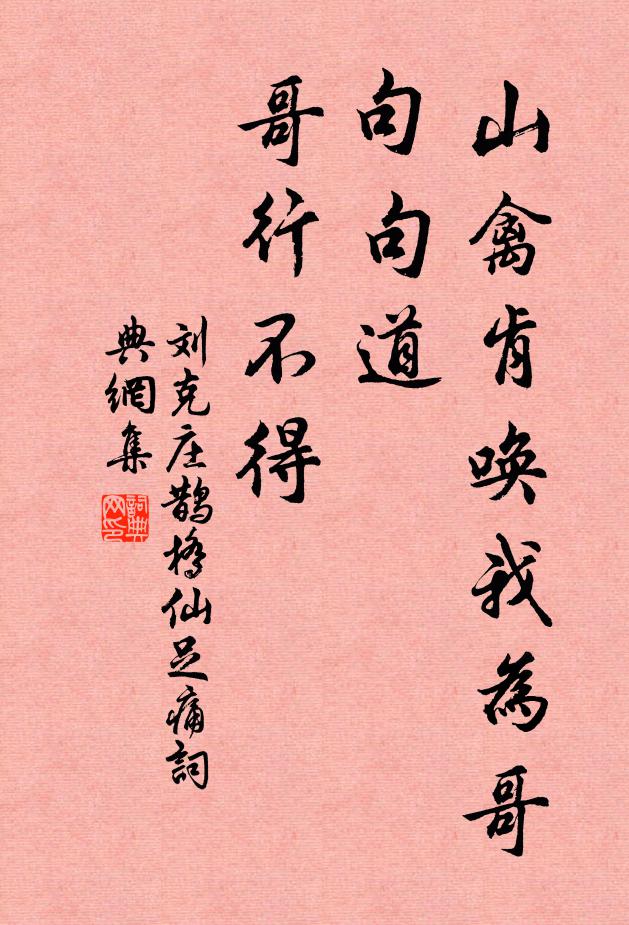 山禽肯唤我為哥
句句道
哥行不得
刘克庄鹊橋仙足痛詞
典網集
詞典
网印